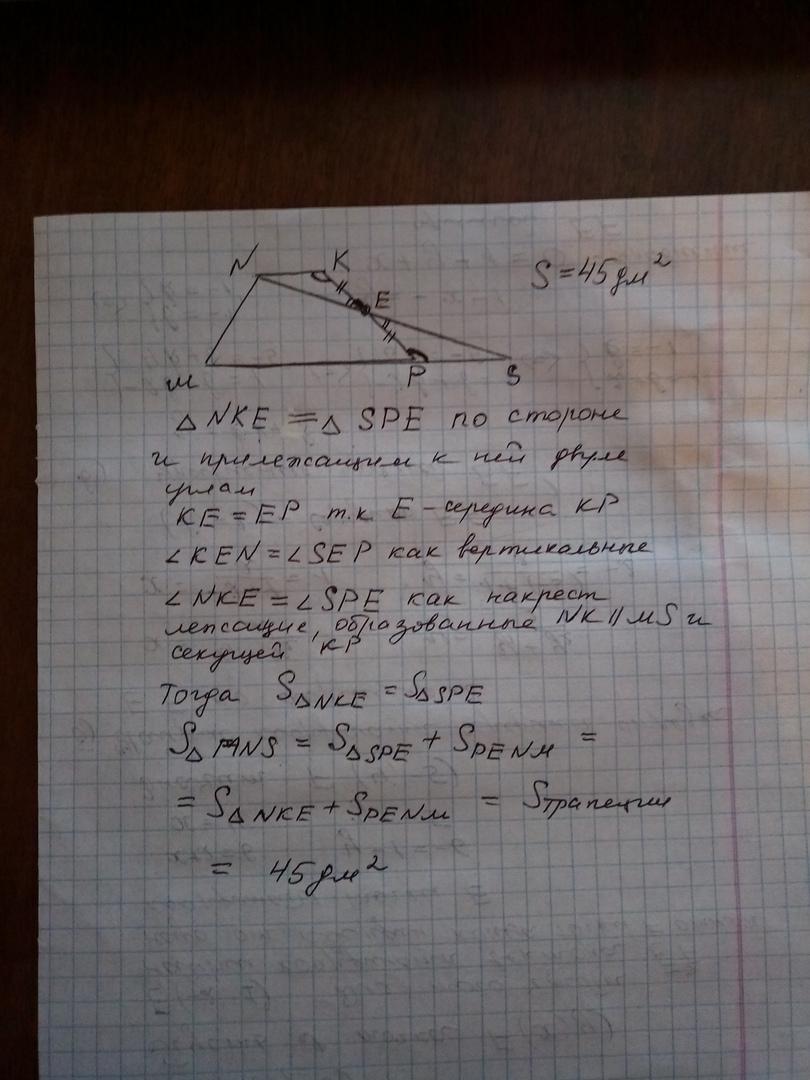 N K E M P S
S = 45 дм²
△ NKE = △ SPE по стороне
и прилежащим к ней двум
углам
KE = EP т.к E - середина KP
∠KEN = ∠SEP как вертикальные
∠NKE = ∠SPE как накрест
лежащие, образованные NK || MS и
секущей KP
Тогда S△NKE = S△SPE
S△ MNS = S△SPE + SPENM =
= S△NKE + SPENM = Sтрапеции
= 45 дм²